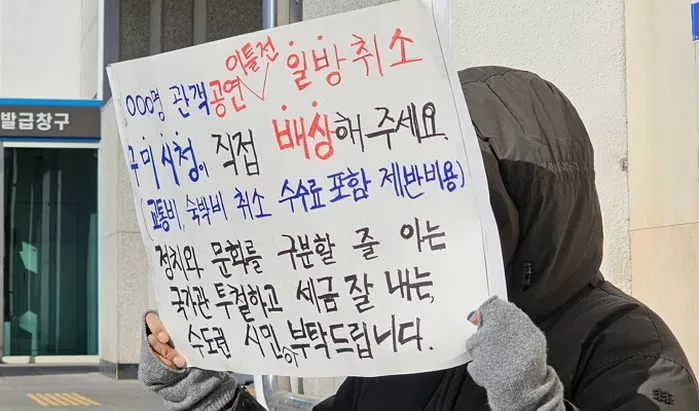 발급창구
000명 관객 공연 이틀전 일방취소
구미시청이 직접 배상해 주세요.
(교통비, 숙박비 취소 수수료 포함 제반비용)
정치와 문화를 구분할 줄 아는
국가관 투철하고 세금 잘 내는,
수도권 시민이 부탁드립니다.